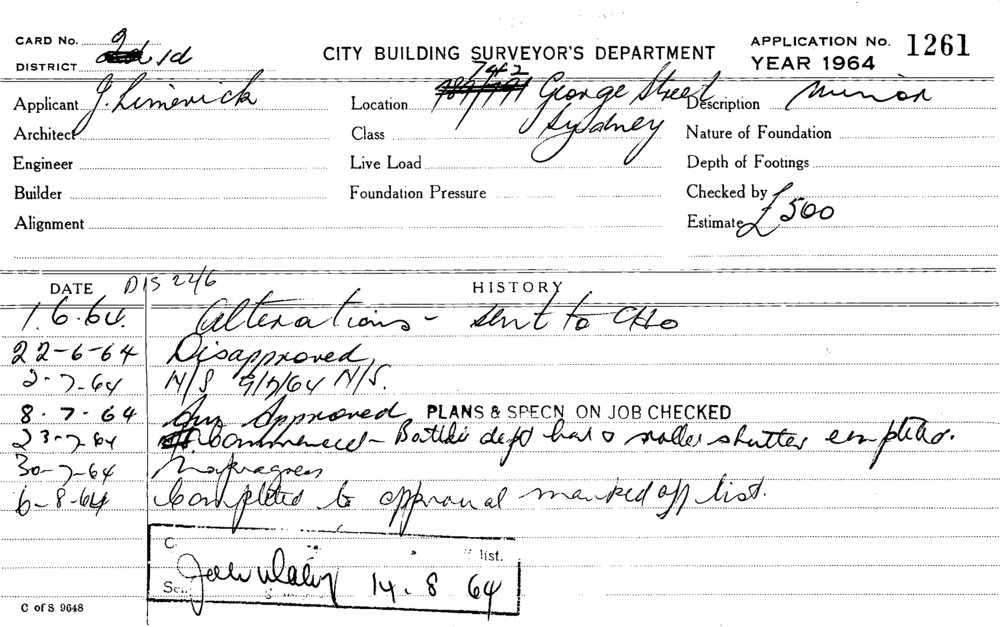 CARD No. 2
DISTRICT 1d
CITY BUILDING SURVEYOR'S DEPARTMENT
APPLICATION No. 1261
YEAR 1964
Applicant J. Limerick
Location 742 George Street Sydney
Description Minor
Architect
Class
Nature of Foundation
Engineer
Live Load
Depth of Footings
Builder
Foundation Pressure
Checked by
Alignment
Estimate £500
DATE DIS 22/6 HISTORY
1.6.64. Alterations - sent to CHO
22-6-64 Disapproved
2-7-64 N/S 9/7/64 N/S.
8.7-64 Approved PLANS & SPECN ON JOB CHECKED
23-7-64 Commenced - dept bar & roller shutter
30-7-64 No progress
6-8-64 Completed to approval marked off list.
C. list.
14.8 64
C of S 9648